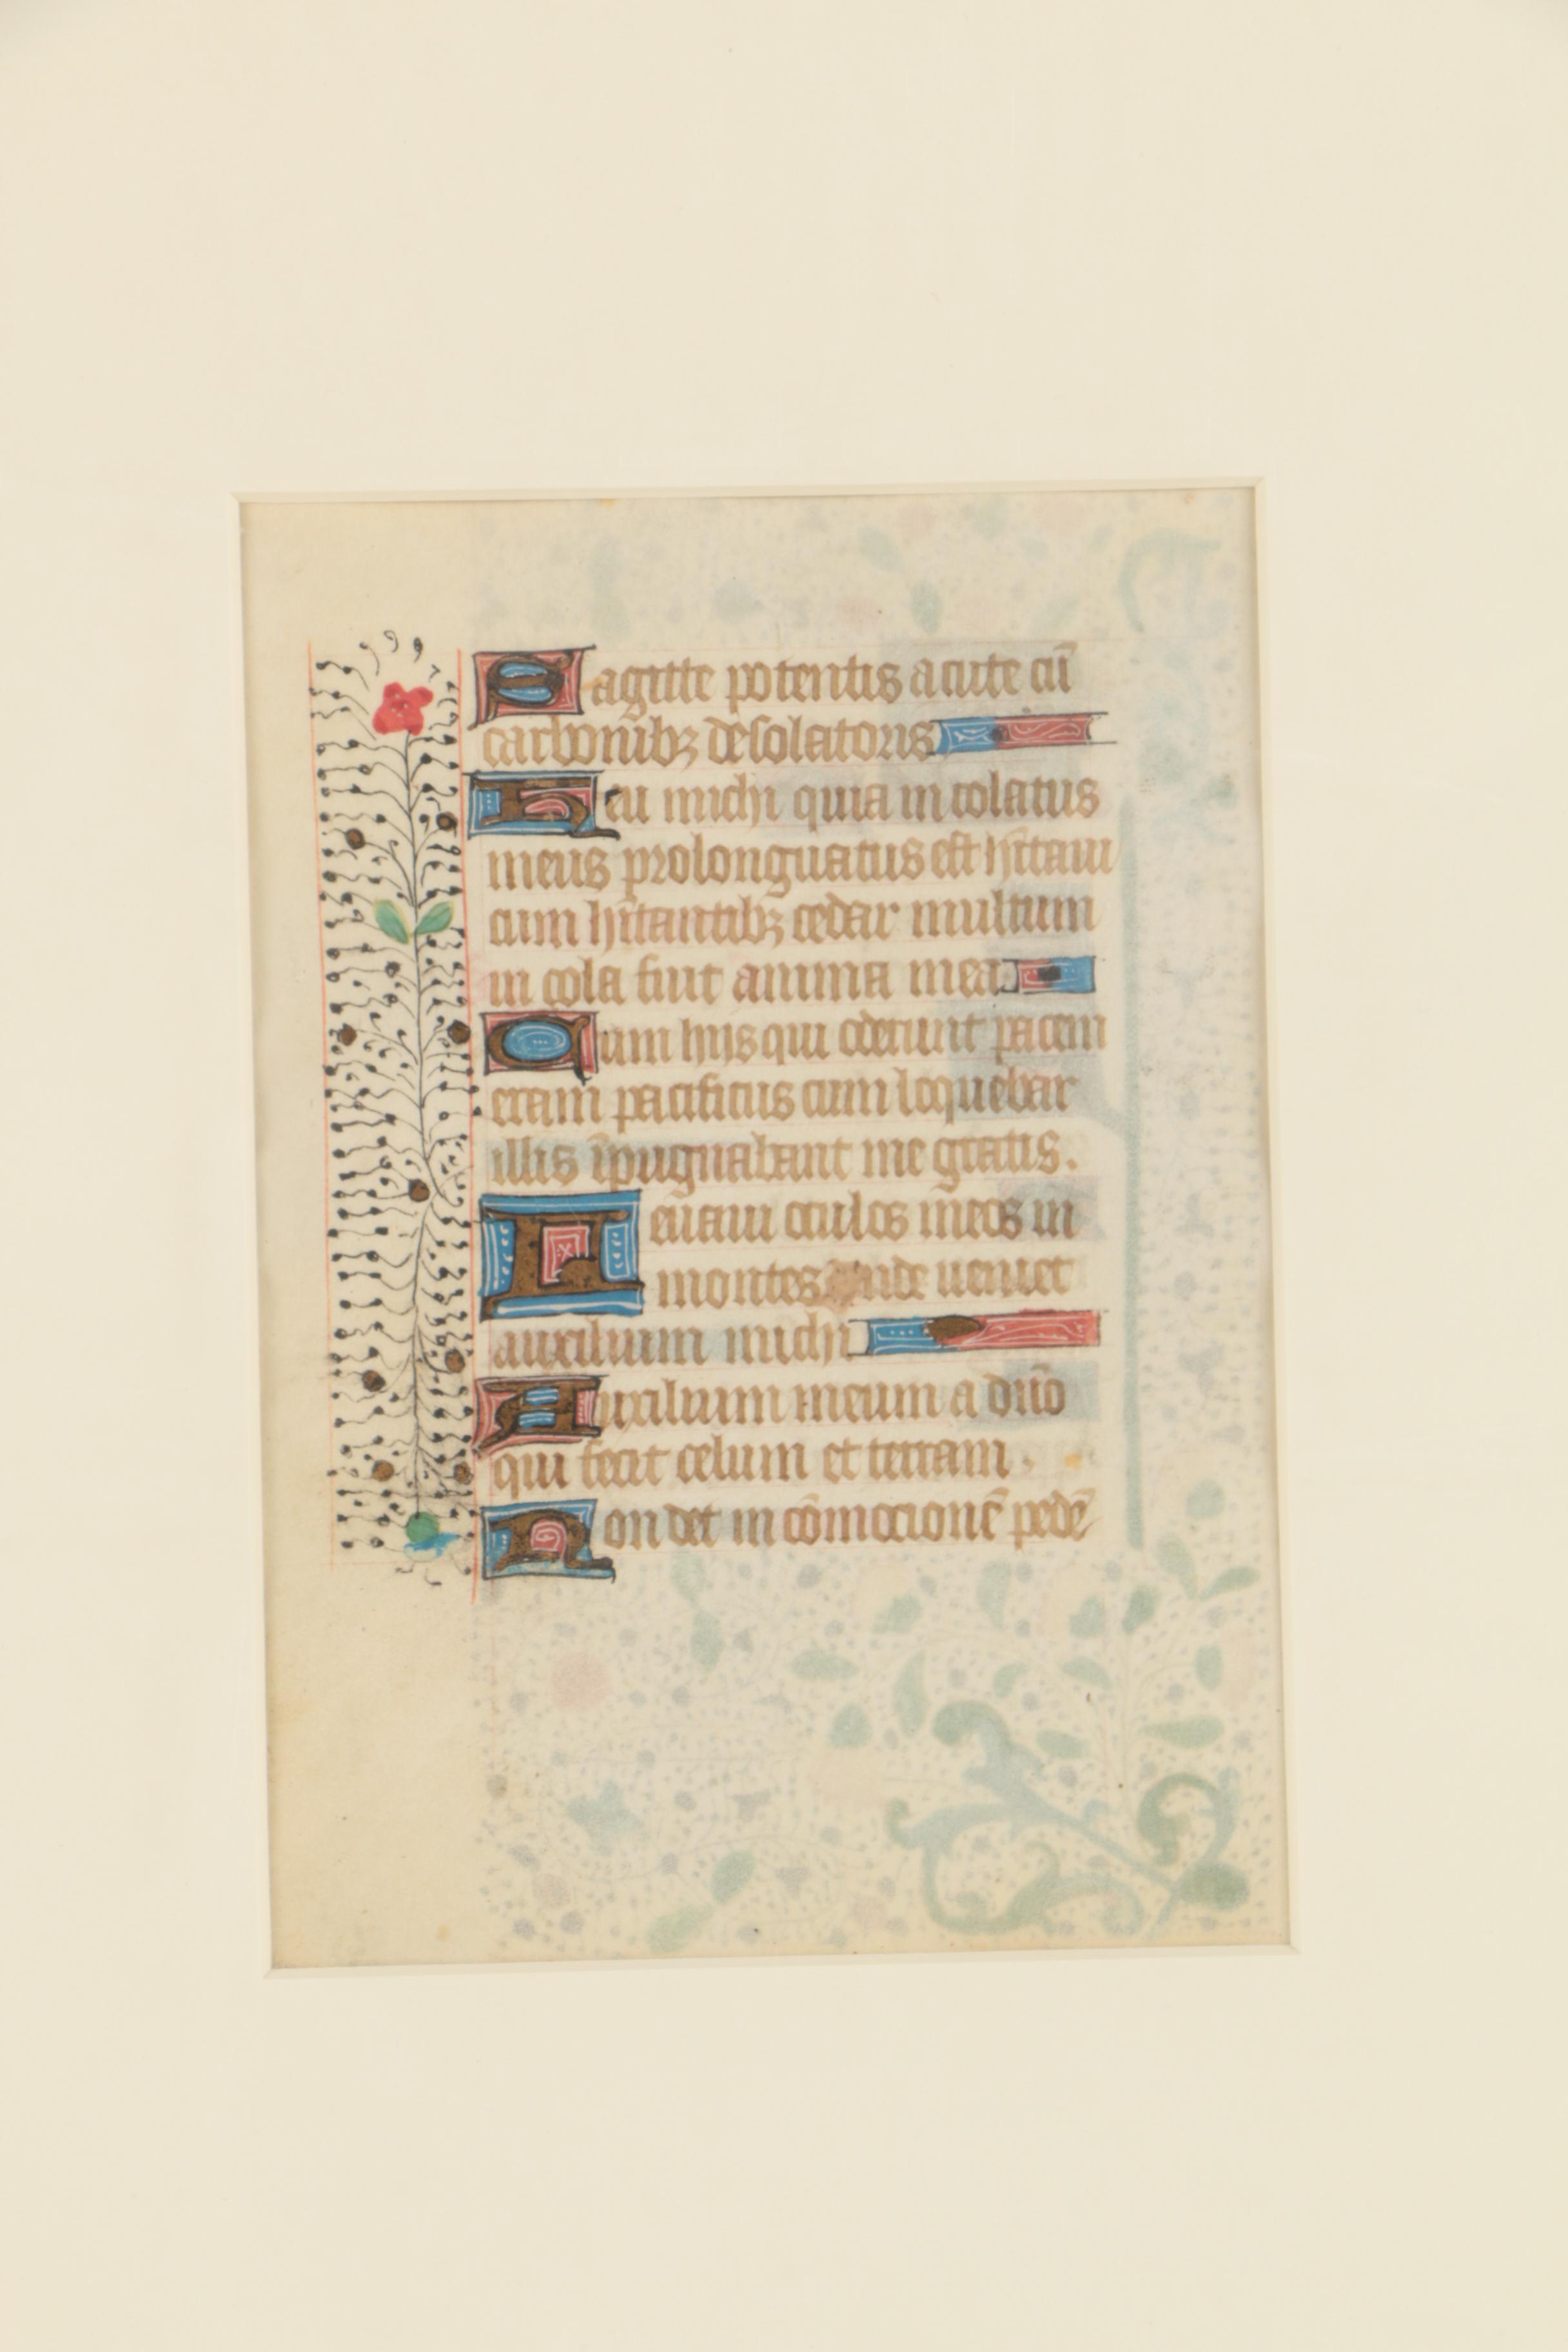 Sagitte potentis acute cū
carbonibꝫ desolatoris
Heu michi quia incolatus
meus prolonguatus est hītaui
cum hītantibꝫ cedar multum
in cola fuit anima mea
Cum hiis qui oderunt pacem
eram pacificus cum loquebar
illis īpugnabant me gratis.
Leuaui oculos meos in
montes unde ueniet
auxilium michi
Auxilium meum a dño
qui fecit celum et terram.
Non det in cōmocionē pedē